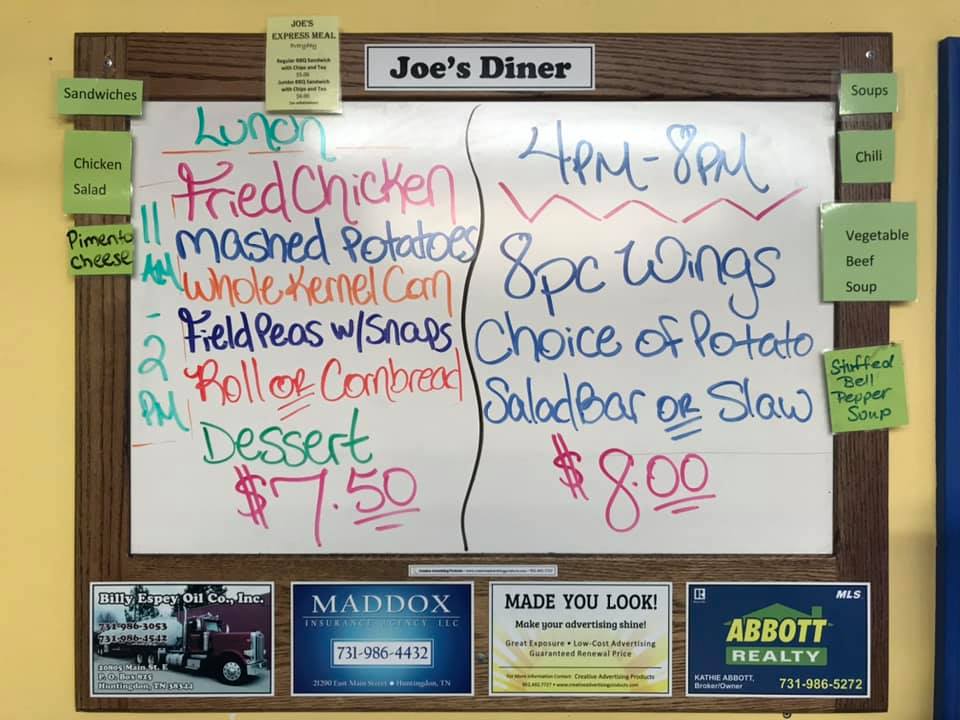 JOE'S
EXPRESS MEAL
Everyday
Regular BBQ Sandwich
with Chips and Tea
$5.00
Jumbo BBQ Sandwich
with Chips and Tea
Joe's Diner
Sandwiches
Chicken
Salad
Pimento
Cheese
Lunch
11
AM
-
2
PM
Fried Chicken
Mashed Potatoes
Whole Kernel Corn
Field Peas w/Snaps
Roll OR Cornbread
Dessert
$7.50
4PM-8PM
8pc Wings
Choice of Potato
Salad Bar OR Slaw
$8.00
Soups
Chili
Vegetable
Beef
Soup
Stuffed
Bell
Pepper
Soup
Billy Espey Oil Co., Inc.
731-986-3053
731-986-4542
20805 Main St. E
P. O. Box 825
Huntingdon, TN 38344
MADDOX
INSURANCE AGENCY LLC
731-986-4432
21290 East Main Street • Huntingdon, TN
MADE YOU LOOK!
Make your advertising shine!
Great Exposure • Low-Cost Advertising
Guaranteed Renewal Price
For More Information Contact: Creative Advertising Products
902.492.7727 • www.creativeadvertisingproducts.com
R
MLS
ABBOTT
REALTY
KATHIE ABBOTT,
Broker/Owner
731-986-5272